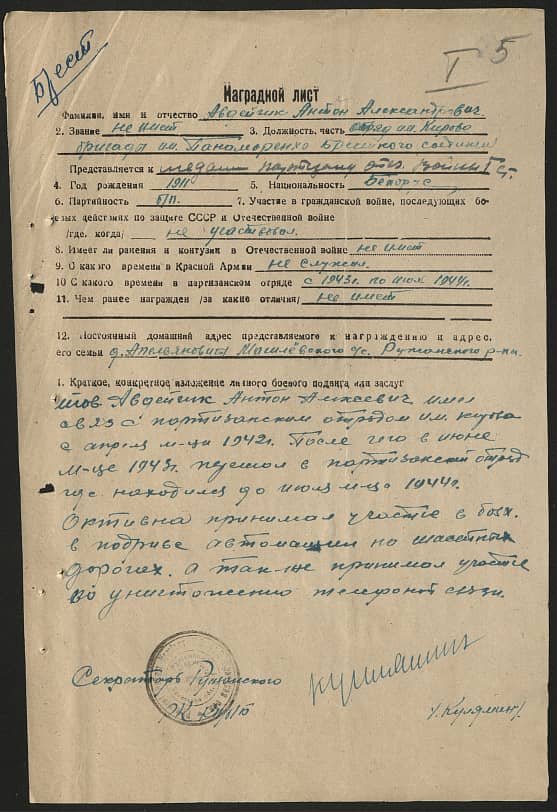 Брест
I 5
Наградной лист
Фамилия, имя и отчество Авдейчик Антон Александрович
2. Звание не имеет 3. Должность, часть отряд им. Кирова
бригады им. Пономаренко Брестского соединен
Представляется к медали партизану отеч. войны I ст.
4. Год рождения 1911 5. Национальность Белорус
6. Партийность б/п. 7. Участие в гражданской войне, последующих бо-
евых действиях по защите СССР и Отечественной войне
/где, когда/ не участвовал.
8. Имеет ли ранения и контузии в Отечественной войне не имеет
9. С какого времени в Красной Армии не служил.
10 С какого времени в партизанском отряде с 1943г. по июль 1944г.
11. Чем ранее награжден /за какие отличия/ не имеет
12. Постоянный домашний адрес представляемого к награждению и адрес
его семьи д. Могилёвского с/с. Ружанского р-на.
1. Краткое, конкретное изложение личного боевого подвига или заслуг
тов. Авдейчик Антон Алксеевич имел
связ с партизанским отрядом им. Кирова
с апреля м-ца 1942г. После чего в июне
м-це 1943г. перешол в партизанский отряд
где находился до июля м-ца 1944г.
Октивна принимал участие в боях.
в подриве автомашин на шассетных
дорогах. а так-же принимал участие
во уничтожению телефоной связи.
Секраторь Ружанского
РК КП/б/Б
/. Кулямин/